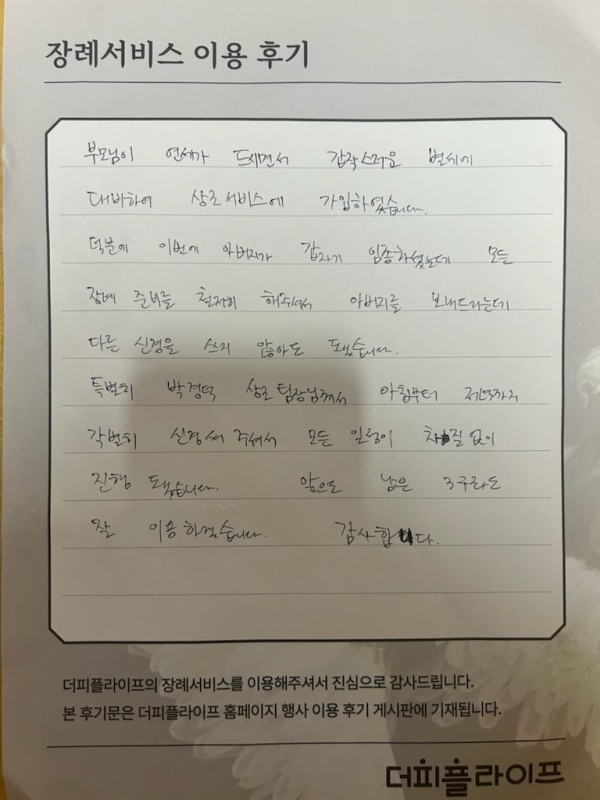 장례서비스 이용 후기
부모님이 연세가 드시면서 갑작스러운 별세에
대비하여 상조서비스에 가입하였습니다.
덕분에 이번에 아버지가 갑자기 임종하셨는데 모든
장례 준비를 철저히 해주셔서 아버지를 보내드리는데
다른 신경을 쓰지 않아도 됐습니다.
특별히 박경덕 상조 팀장님께서 아침부터 저녁까지
각별히 신경써 주셔서 모든 일정이 차질 없이
진행 됐습니다. 앞으로 남은 3구좌도
잘 이용하겠습니다. 감사합니다.
더피플라이프의 장례서비스를 이용해주셔서 진심으로 감사드립니다.
본 후기문은 더피플라이프 홈페이지 행사 이용 후기 게시판에 기재됩니다.
더피플라이프